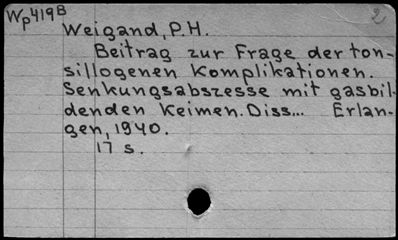 Wp419B
2
Weigand, P.H.
Beitrag zur Frage der ton-
sillogenen Komplikationen.
Senkungsabszesse mit gasbil-
denden Keimen. Diss... Erlan-
gen, 1940.
17 s.